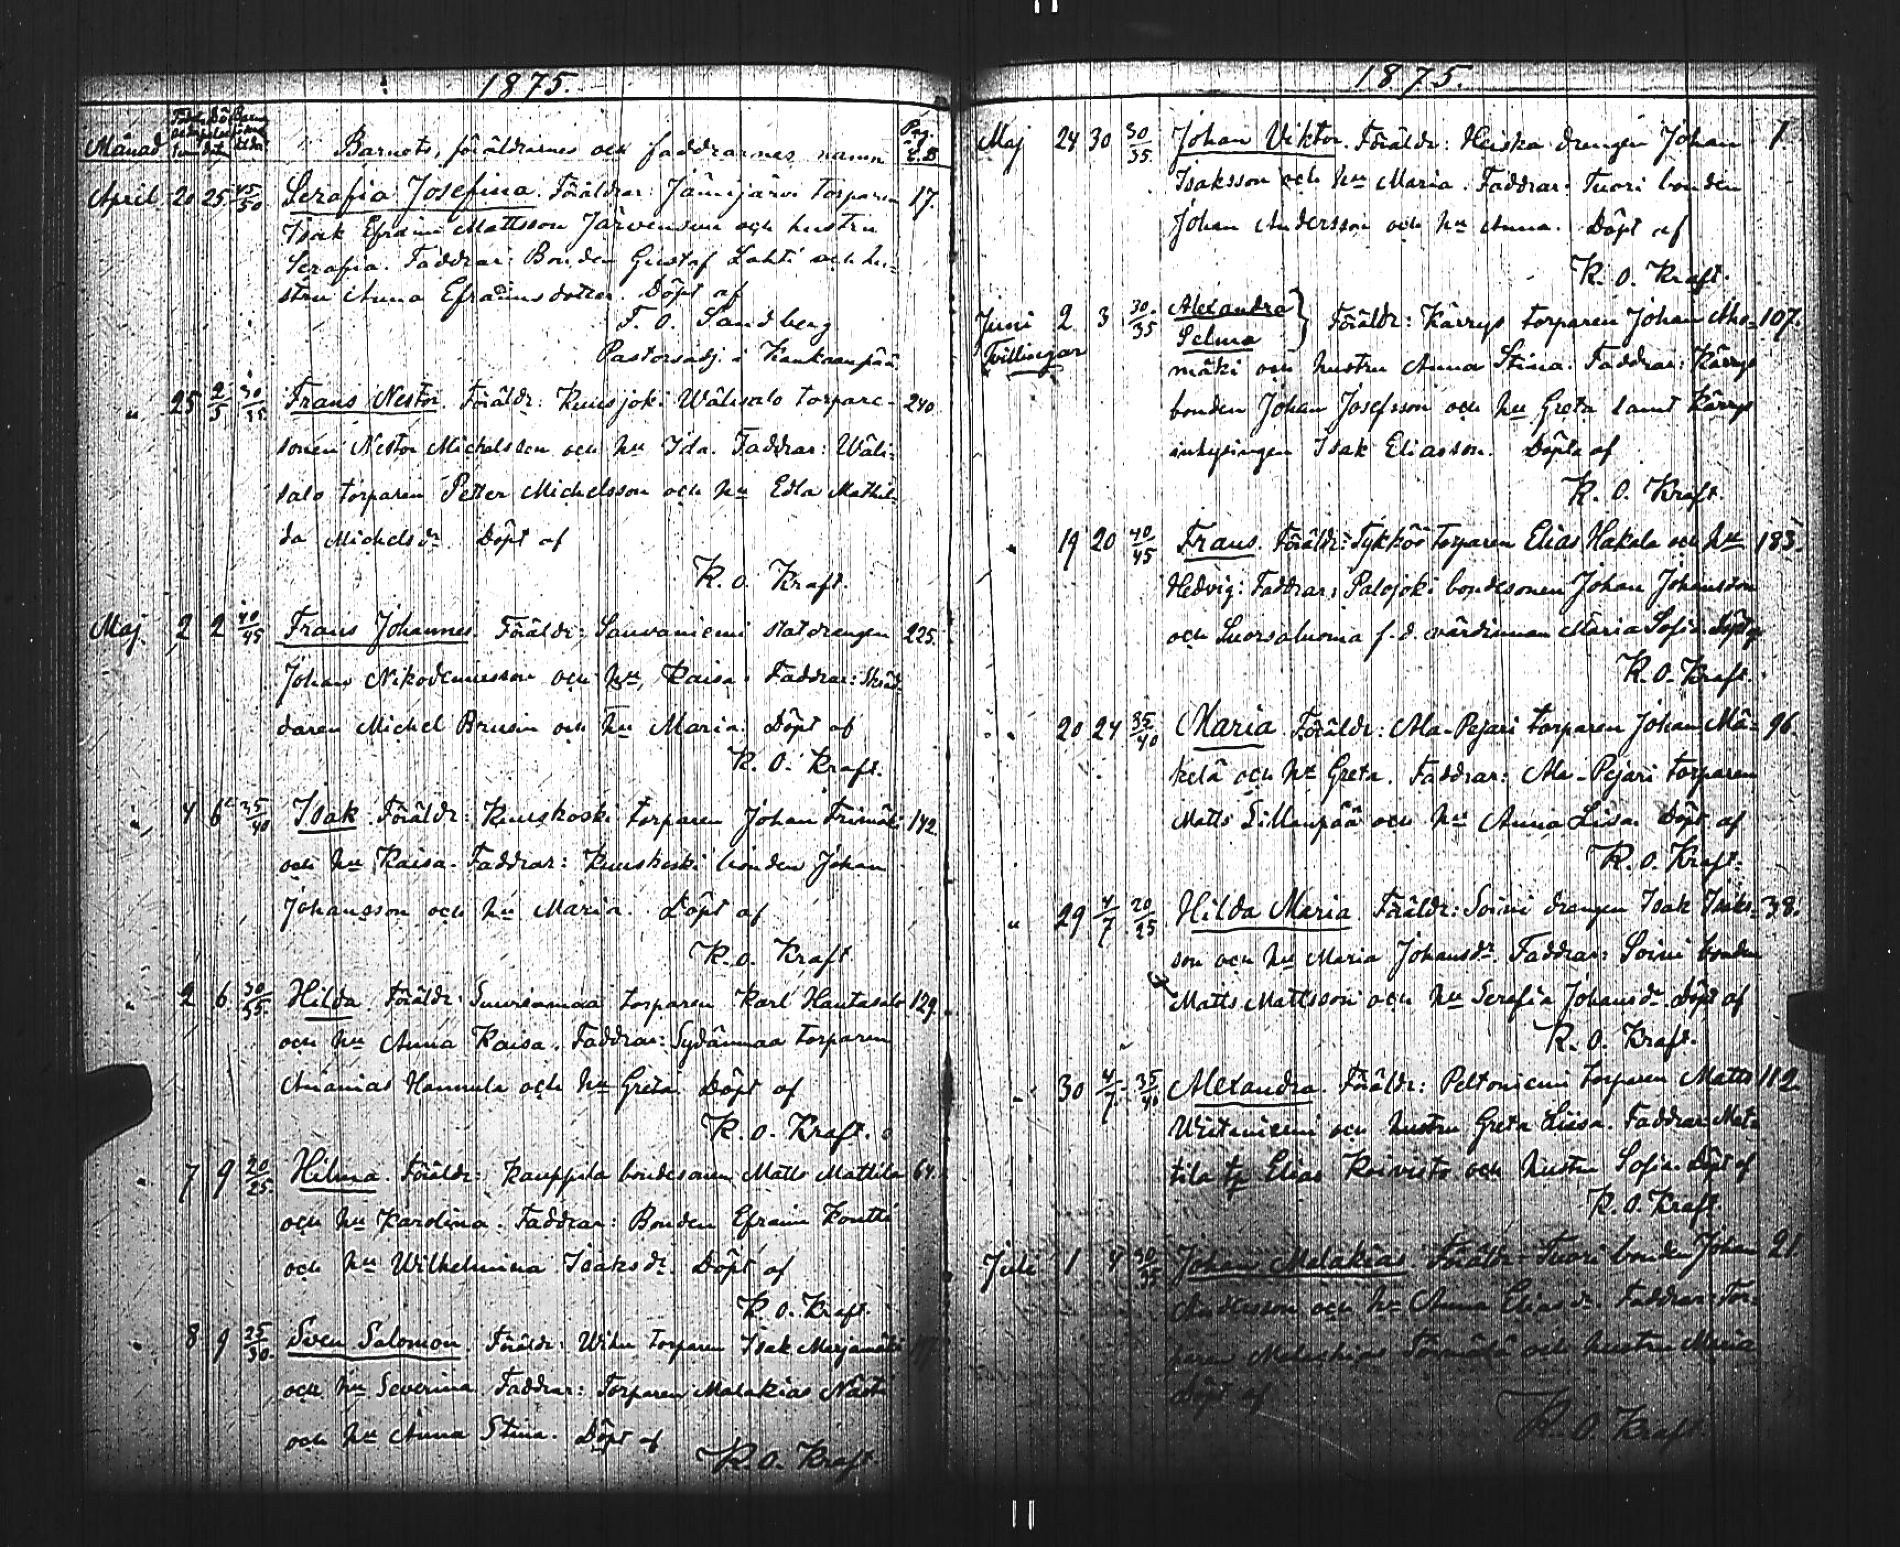 1875.
Månad Barnets, föräldrarnes och faddrarnes namn Pag. C.B.
April 20 25 45/50 Serafia Josefina. Föräldrar: Jämijärvi torparen 17.
Isak Efraim Mattsson Järvensivu och hustru
Serafia. Faddrar: Bonden Gustaf Lahti och hu-
stru Anna Efraimsdotter. Döpt af
F. O. Sandberg
Pastorsadj. i Kankaanpää.
" 25 2/5 30/35 Frans Nestor. Föräldr: Kuusjoki Wälisalo torpare- 240
sonen Nestor Michelsson och hu Ida. Faddrar: Wäli-
salo torparen Petter Michelsson och hu Edla Mathil-
da Michelsdr. Döpt af
K. O. Kraft.
Maj. 2 2 40/45 Frans Johannes. Föräldr: Sauvaniemi statdrengen 225.
Johan Nikodemusson och hu Kaisa. Faddrar: Skräd-
daren Michel Brusin och hu Maria. Döpt af
K. O. Kraft.
" 4 6 35/40 Isak. Föräldr: Kuuskoski torparen Johan 142.
och hu Kaisa. Faddrar: Kuuskoski bonden Johan
Johansson och hu Maria. Döpt af
K. O. Kraft
" 2 6 30/35 Hilda. Föräldr: Suurimaa torparen Karl Hautasalo 129.
och hu Anna Kaisa. Faddrar: Sydänmaa torparen
Ananias Hannula och hu Greta. Döpt af
K. O. Kraft.
" 7 9 20/25 Hilma. Föräldr: Kauppila bondesonen Matts Mattila 64.
och hu Karolina. Faddrar: Bonden Efraim Kontti
och hu Wilhelmina Isaksdr. Döpt af
K. O. Kraft.
" 8 9 25/30 Sven Salomon. Föräldr: Wihu torparen Isak Marjamäki
och hu Severina. Faddrar: Torparen Malakias
och hu Anna Stina. Döpt af
K. O. Kraft
1875.
Maj 24 30 30/35 Johan Viktor. Föräldr: Heiska drengen Johan 7.
Isaksson och hu Maria. Faddrar: Tuori bonden
Johan Andersson och hu Anna. Döpt af
K. O. Kraft.
Juni 2 3 30/35 Alexandra
Tvillingar Selma } Föräldr: Kärrys torparen Johan Aho- 107.
mäki och hustru Anna Stina. Faddrar: Kärrys
bonden Johan Josefsson och hu Greta samt Kärrys
inhysingen Isak Eliasson. Döpta af
K. O. Kraft.
" 19 20 40/45 Frans. Föräldr: Tykköö torparen Elias Hakala och hu 183.
Hedvig. Faddrar: Palojoki bondesonen Johan Johansson
och Suorsaluoma f.d. värdinnan Maria Sofia. Döpt af
K. O. Kraft.
" 20 24 35/40 Maria. Föräldr: Ala-Pejari torparen Johan Mä- 96.
kelä och hu Greta. Faddrar: Ala-Pejari torparen
Matts Sillanpää och hu Anna Lisa. Döpt af
K. O. Kraft.
" 29 4/7 20/25 Hilda Maria. Föräldr: Soini drengen Isak Isaks- 38.
son och hu Maria Johansdr. Faddrar: Soini bonden
Matts Mattsson och hu Serafia Johansdr. Döpt af
K. O. Kraft.
" 30 4/7 35/40 Alexandra. Föräldr: Peltoniemi torparen Matts 112.
Wiitaniemi och hustru Greta Liisa. Faddrar: Mat-
tila tp Elias Koivisto och hustru Sofia. Döpt af
K. O. Kraft
Juli 1 4 30/35 Johan Malakias. Föräldr: Tuori bonden Johan 21.
Andersson och hu Anna Eliasdr. Faddrar: Tor-
paren Malakias och hustru Maria
Döpt af
K. O. Kraft.